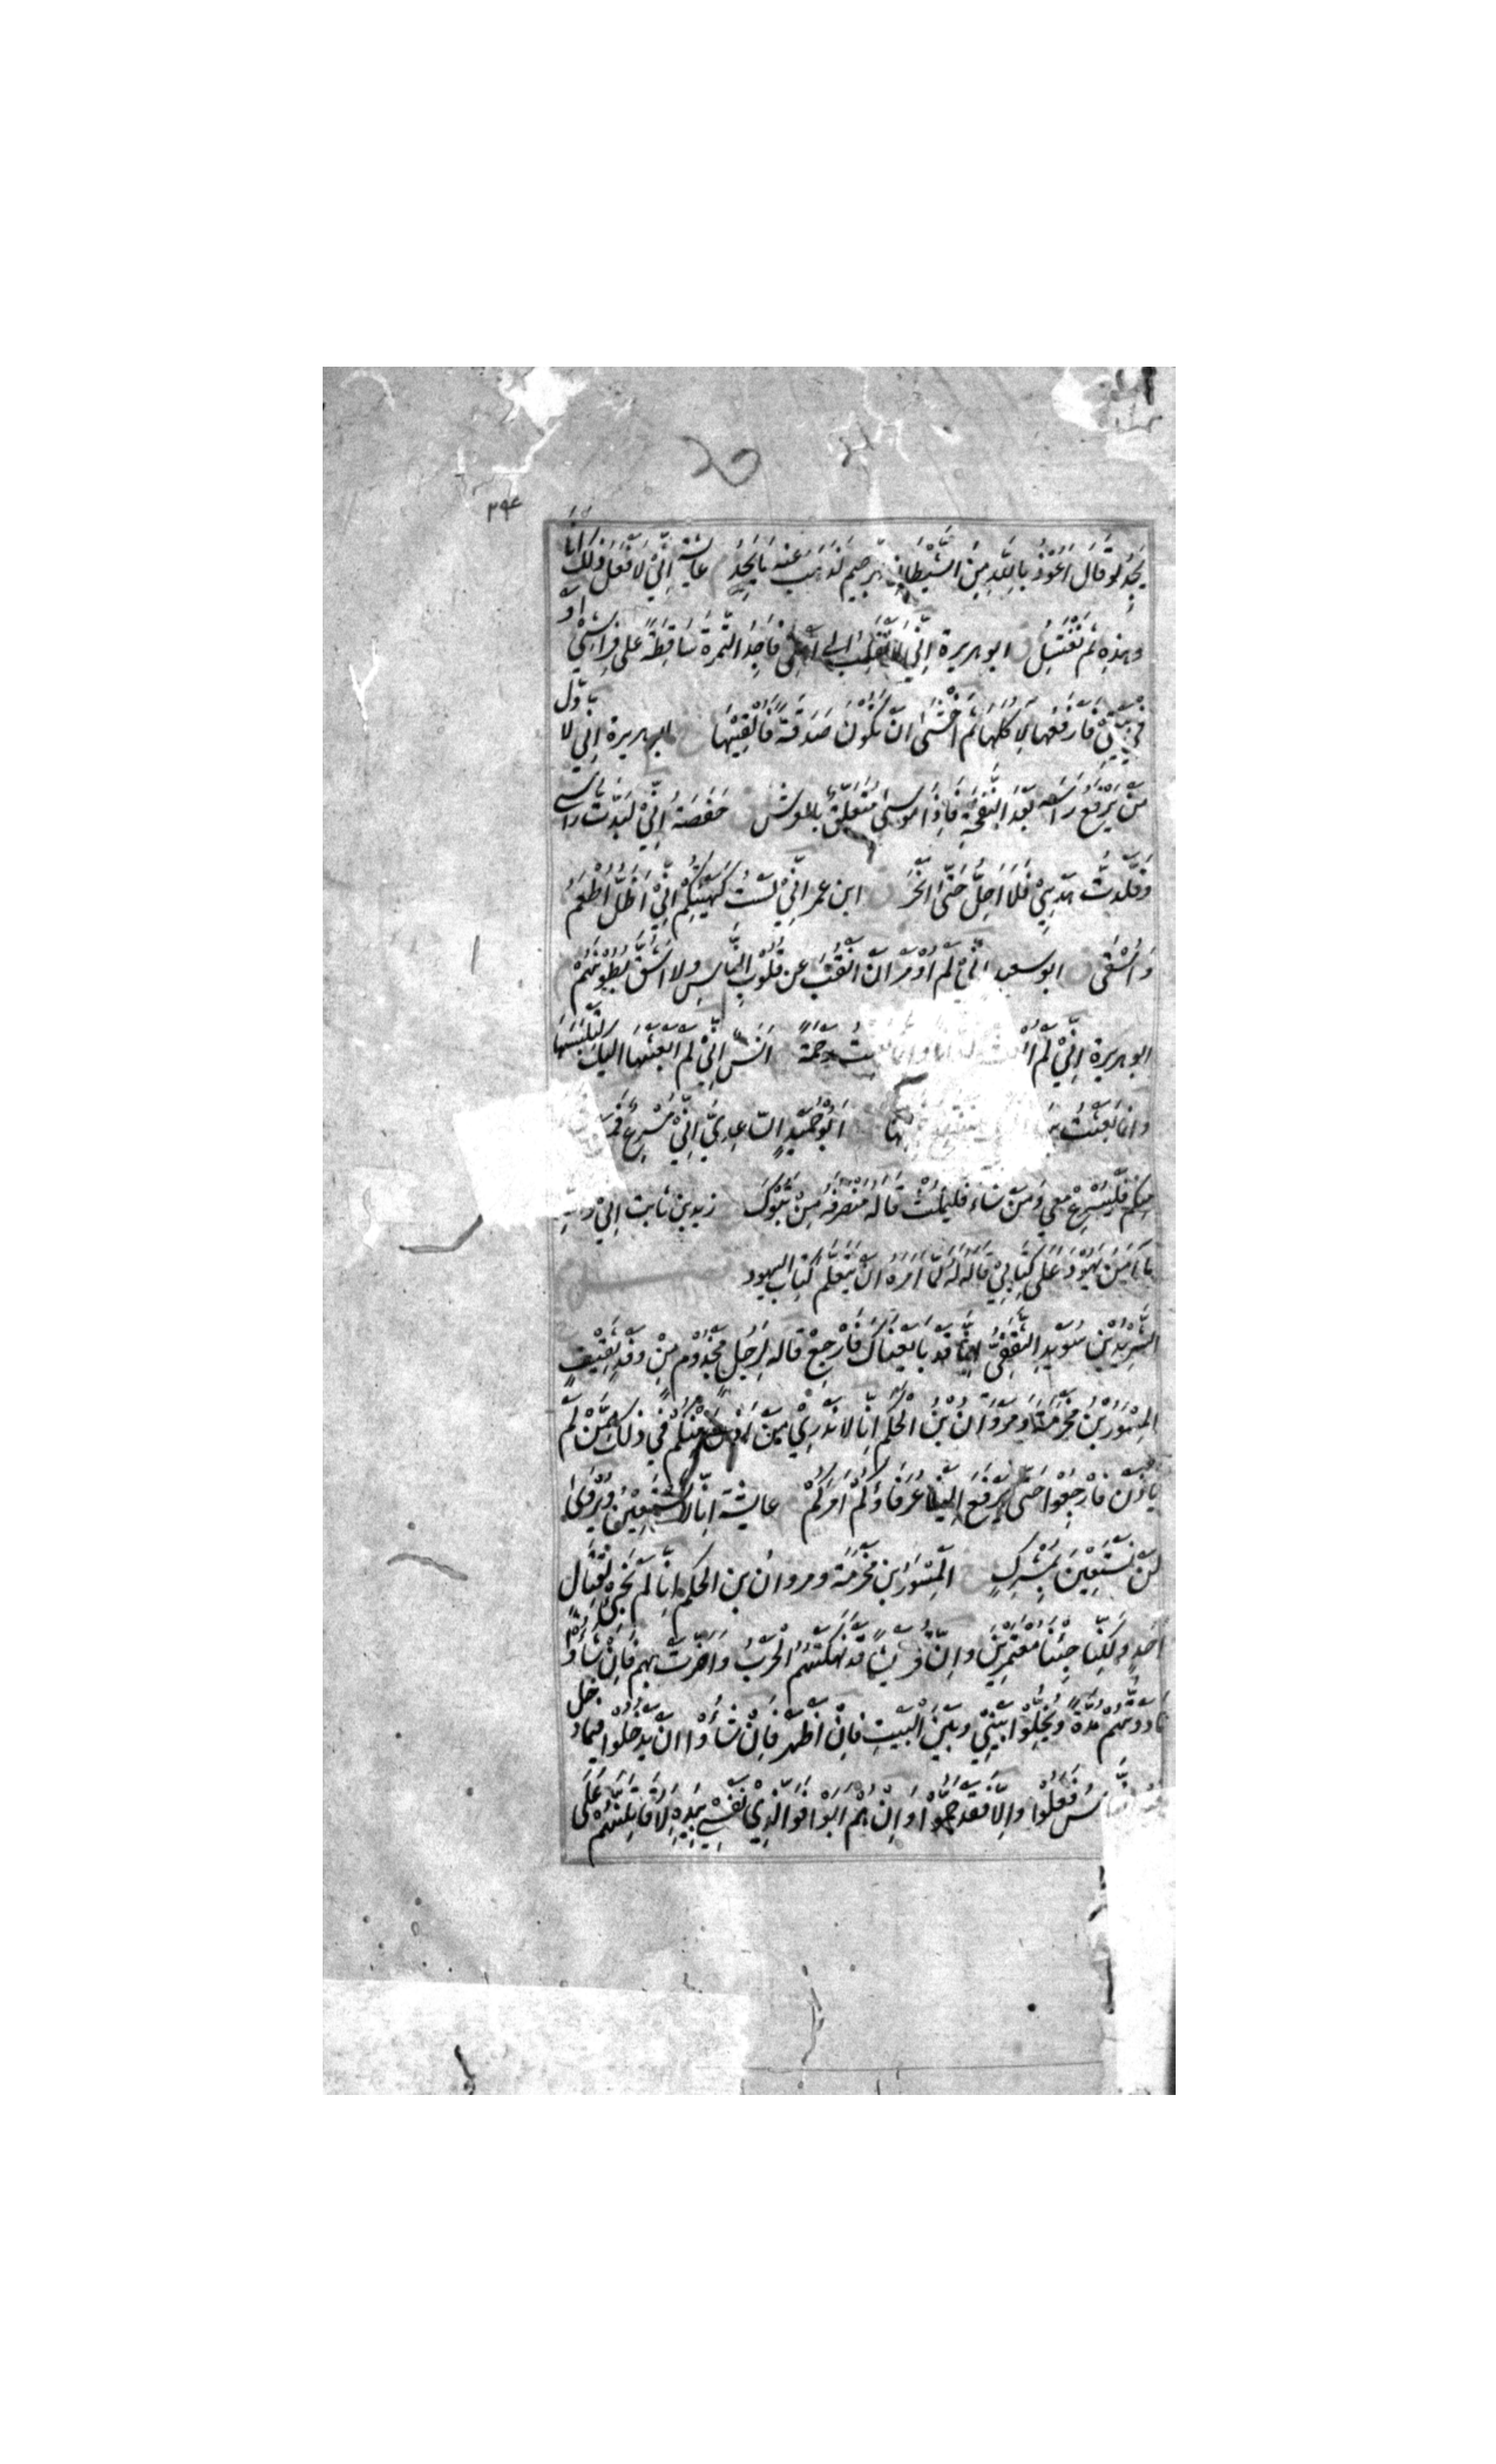 ۲۹۴
يَجِدُ لَوْ قَالَ اَعُوْذُ بِاللّٰهِ مِنَ الشَّيْطَانِ الرَّجِيْمِ لَذَهَبَ عَنْهُ مَا يَجِدُ م عايشة اِنِّيْ لَاَفْعَلُ ذٰلِكَ اَنَا
وَهٰذِهِ ثُمَّ نَغْتَسِلُ ق ابو هريرة اِنِّيْ لَاَنْقَلِبُ اِلٰى اَهْلِيْ فَاَجِدُ التَّمْرَةَ سَاقِطَةً عَلٰى فِرَاشِيْ اَوْ
فِيْ بَيْتِيْ فَاَرْفَعُهَا لِاٰكُلَهَا ثُمَّ اَخْشٰى اَنْ تَكُوْنَ صَدَقَةً فَاُلْقِيْهَا ابو هريرة اِنِّيْ لَا اَوَّلُ
مَنْ يَرْفَعُ رَاْسَهُ بَعْدَ النَّفْخَةِ فَاِذَا مُوْسٰى مُتَعَلِّقٌ بِالْعَرْشِ ق حَفْصَةُ اِنِّيْ لَبَّدْتُ رَاْسِيْ
وَقَلَّدْتُ هَدْيِيْ فَلَا اَحِلُّ حَتّٰى اَنْحَرَ ق ابن عمر اِنِّيْ لَسْتُ كَهَيْئَتِكُمْ اِنِّيْ اَظَلُّ اُطْعَمُ
وَاُسْقٰى ق ابو سعيد اِنِّيْ لَمْ اُوْمَرْ اَنْ اَنْقُبَ عَنْ قُلُوْبِ النَّاسِ وَلَا اَشُقَّ بُطُوْنَهُمْ
ابو هريرة اِنِّيْ لَمْ اُبْعَثْ لَعَّانًا وَاِنَّمَا بُعِثْتُ رَحْمَةً اَنَسٌ اِنِّيْ لَمْ اَبْعَثْهَا اِلَيْكَ لِتَلْبَسَهَا
وَاِنَّمَا بَعَثْتُ اَبُوْ حُمَيْدٍ السَّاعِدِيُّ اِنِّيْ مُسْرِعٌ فَمَنْ
مِنْكُمْ فَلْيُسْرِعْ مَعِيْ وَمَنْ شَاءَ فَلْيَمْكُثْ قَالَهُ مُنْصَرَفَهُ مِنْ تَبُوْكَ زيد بن ثابت اِنِّيْ وَاللّٰهِ
مَا اٰمَنُ يَهُوْدَ عَلٰى كِتَابِيْ قَالَهُ لَهُ لَمَّا اَمَرَهُ اَنْ يَتَعَلَّمَ كِتَابَ اليهود
الشَّرِيْدُ بْنُ سُوَيْدٍ الثَّقَفِيُّ اِنَّا قَدْ بَايَعْنَاكَ فَارْجِعْ قَالَهُ لِرَجُلٍ مَجْذُوْمٍ مِنْ وَفْدِ ثَقِيْفٍ
الْمِسْوَرُ بْنُ مَخْرَمَةَ وَمَرْوَانُ بْنُ الْحَكَمِ اِنَّا لَا نَدْرِيْ مَنْ اَذِنَ مِنْكُمْ فِيْ ذٰلِكَ مِمَّنْ لَمْ
يَاْذَنْ فَارْجِعُوْا حَتّٰى يَرْفَعَ اِلَيْنَا عُرَفَاؤُكُمْ اَمْرَكُمْ عايشة اِنَّا لَا نَسْتَعِيْنُ وَيُرْوٰى
لَنْ نَسْتَعِيْنَ بِمُشْرِكٍ الْمِسْوَرُ ابن مَخْرَمَةَ ومروان بن الحكم اِنَّا لَمْ نَجِئْ لِقِتَالِ
اَحَدٍ وَلٰكِنَّا جِئْنَا مُعْتَمِرِيْنَ وَاِنَّ قُرَيْشًا قَدْ نَهِكَتْهُمُ الْحَرْبُ وَاَضَرَّتْ بِهِمْ فَاِنْ شَاؤُا
مَادَدْتُهُمْ مُدَّةً وَيُخَلُّوْا بَيْنِيْ وَبَيْنَ الْبَيْتِ فَاِنْ اَظْهَرْ فَاِنْ شَاؤُا اَنْ يَدْخُلُوْا فِيْمَا دَخَلَ
فِيْهِ النَّاسُ فَعَلُوْا وَاِلَّا فَقَدْ جَمُّوْا وَاِنْ هُمْ اَبَوْا فَوَالَّذِيْ نَفْسِيْ بِيَدِهِ لَاُقَاتِلَنَّهُمْ عَلٰى